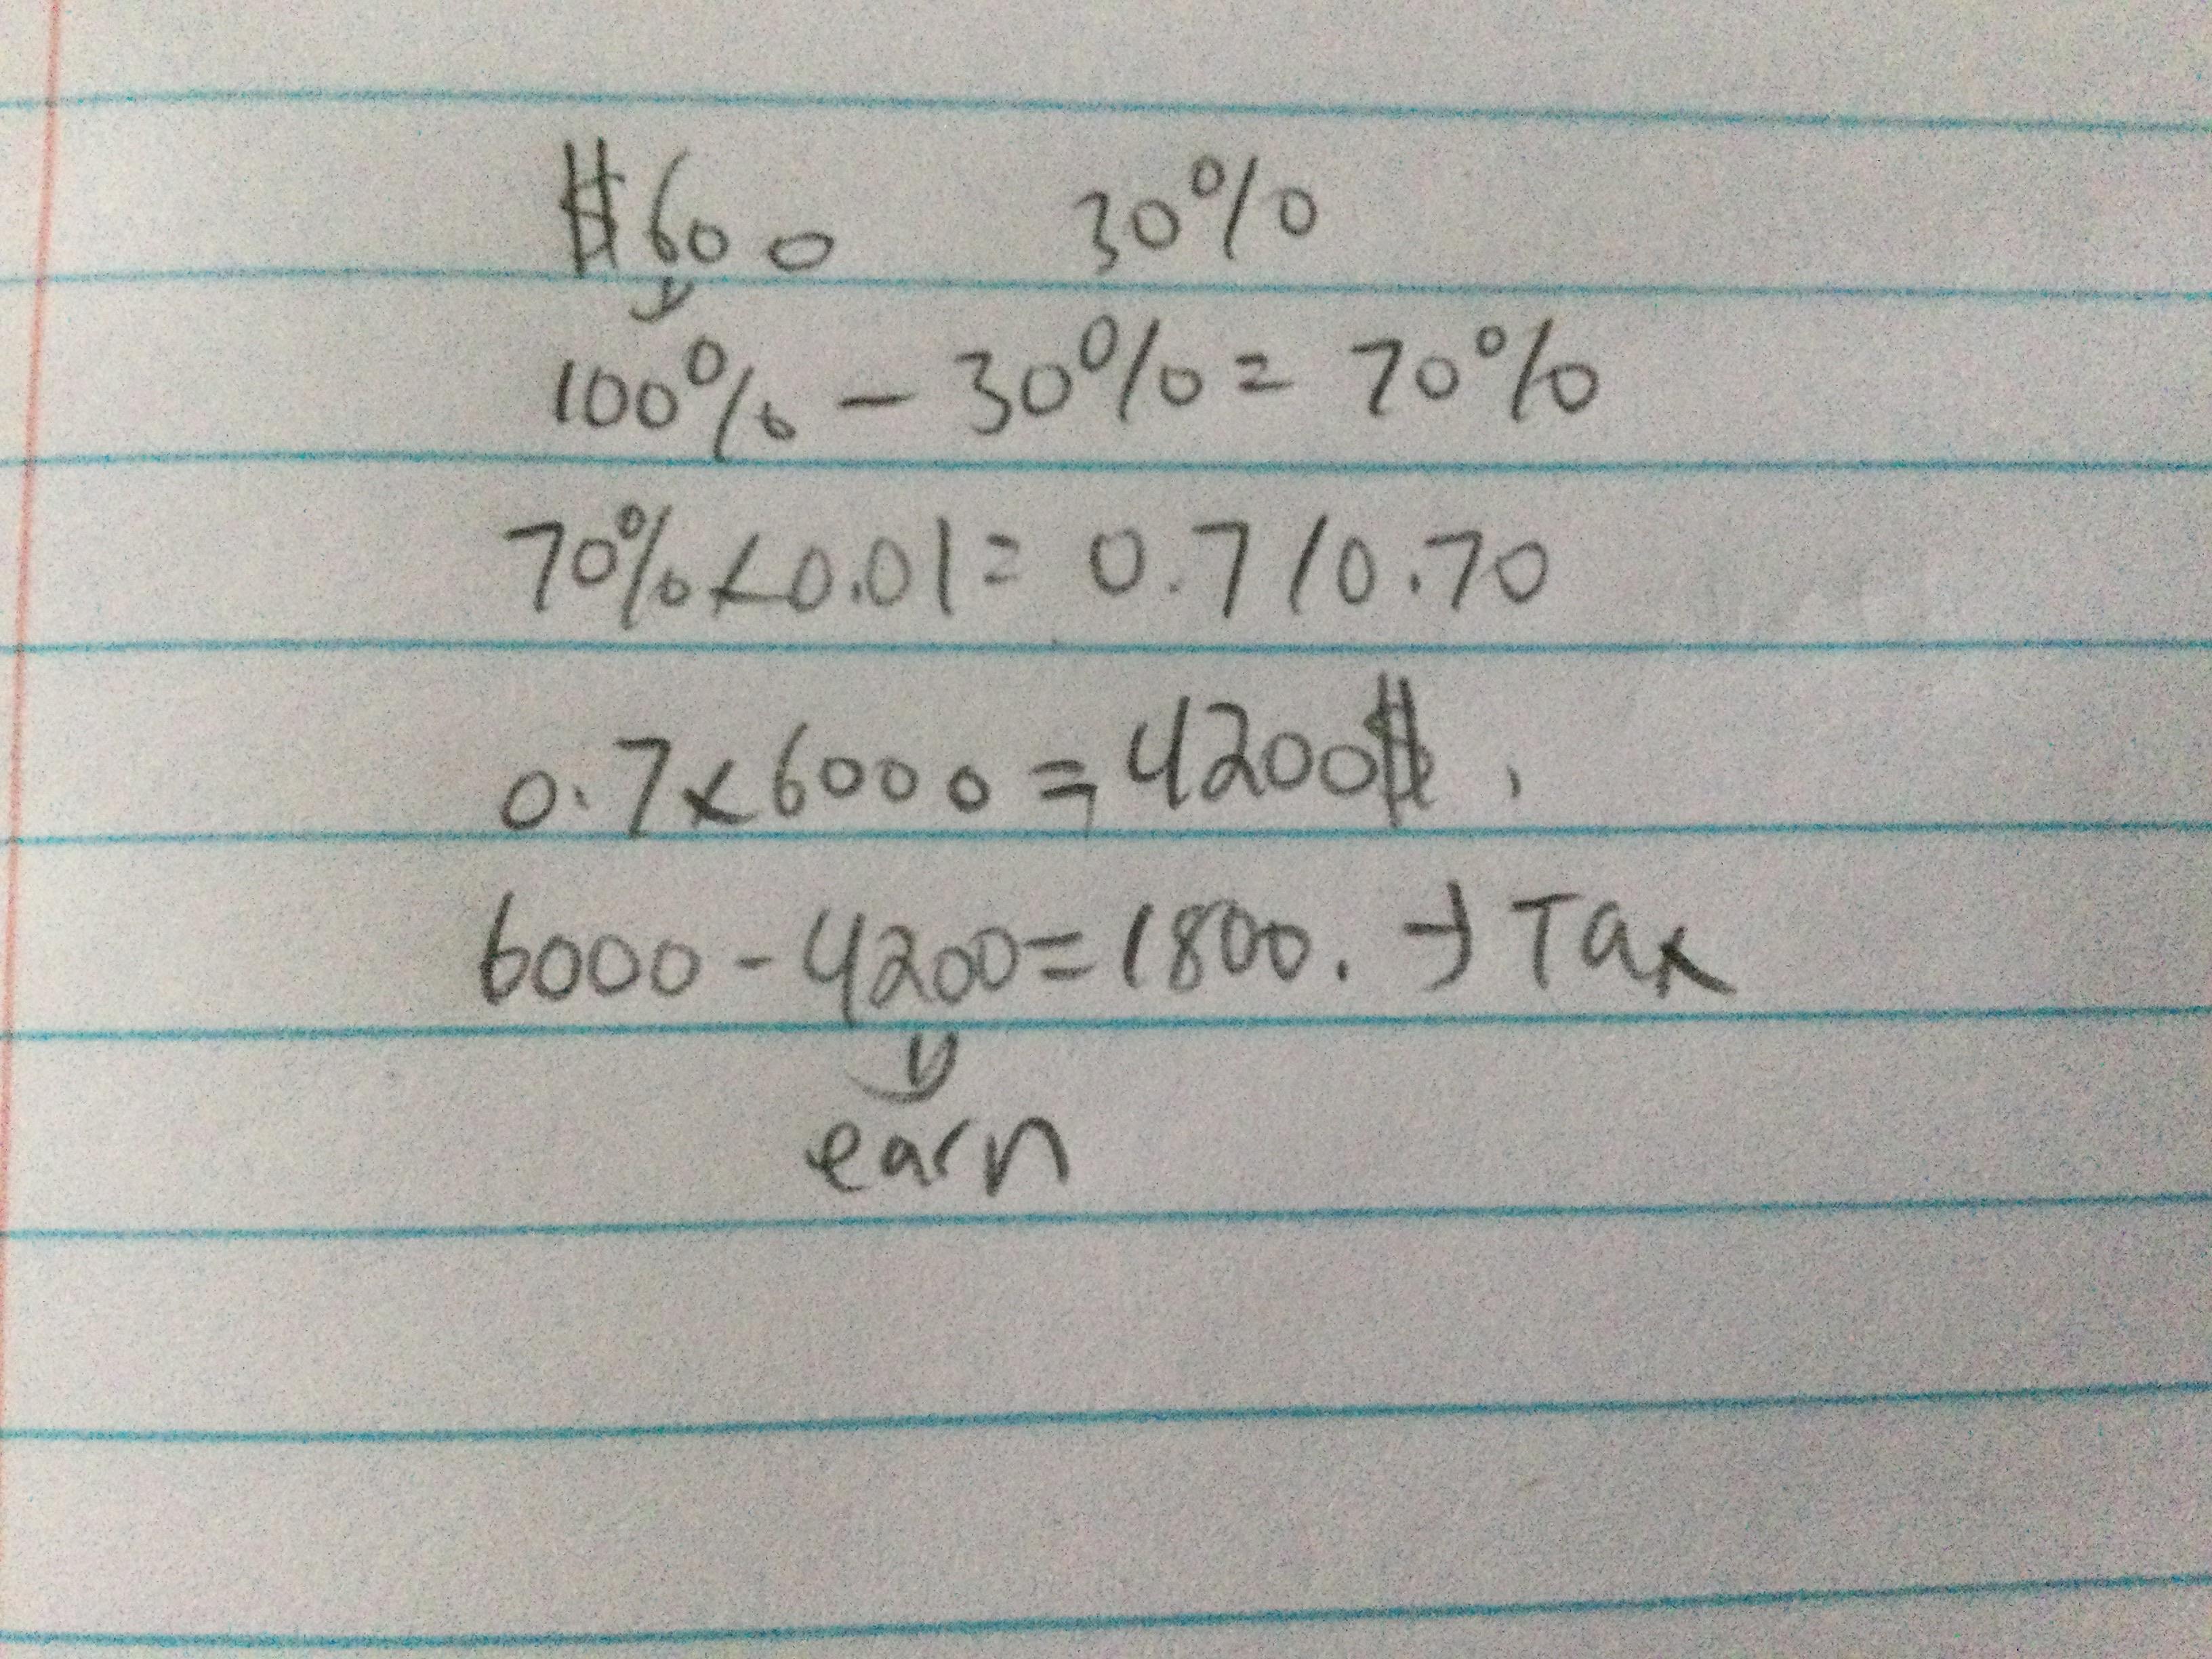 $600 30%
100% - 30% = 70%
70% × 0.01 = 0.7 / 0.70
0.7 × 6000 = 4200$.
6000 - 4200 = 1800. → Tax
earn